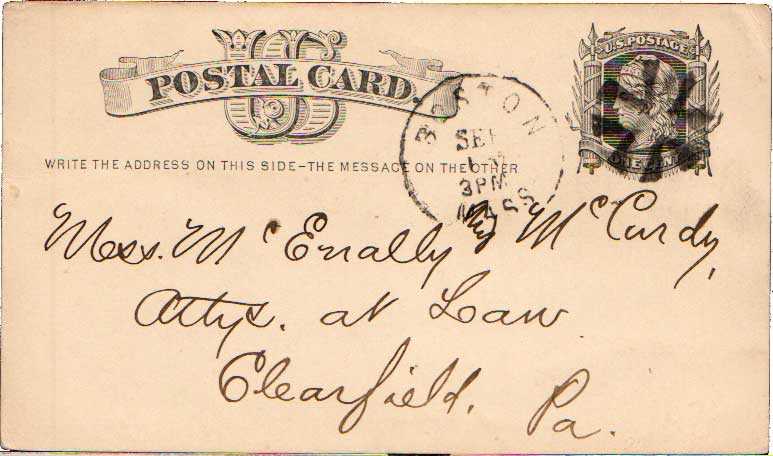 US
POSTAL CARD.
U.S. POSTAGE
ONE CENT
WRITE THE ADDRESS ON THIS SIDE-THE MESSAGE ON THE OTHER
BOSTON
SEP
3PM
MASS
Mess. McEnally & McCurdy,
Attys. at Law
Clearfield, Pa.